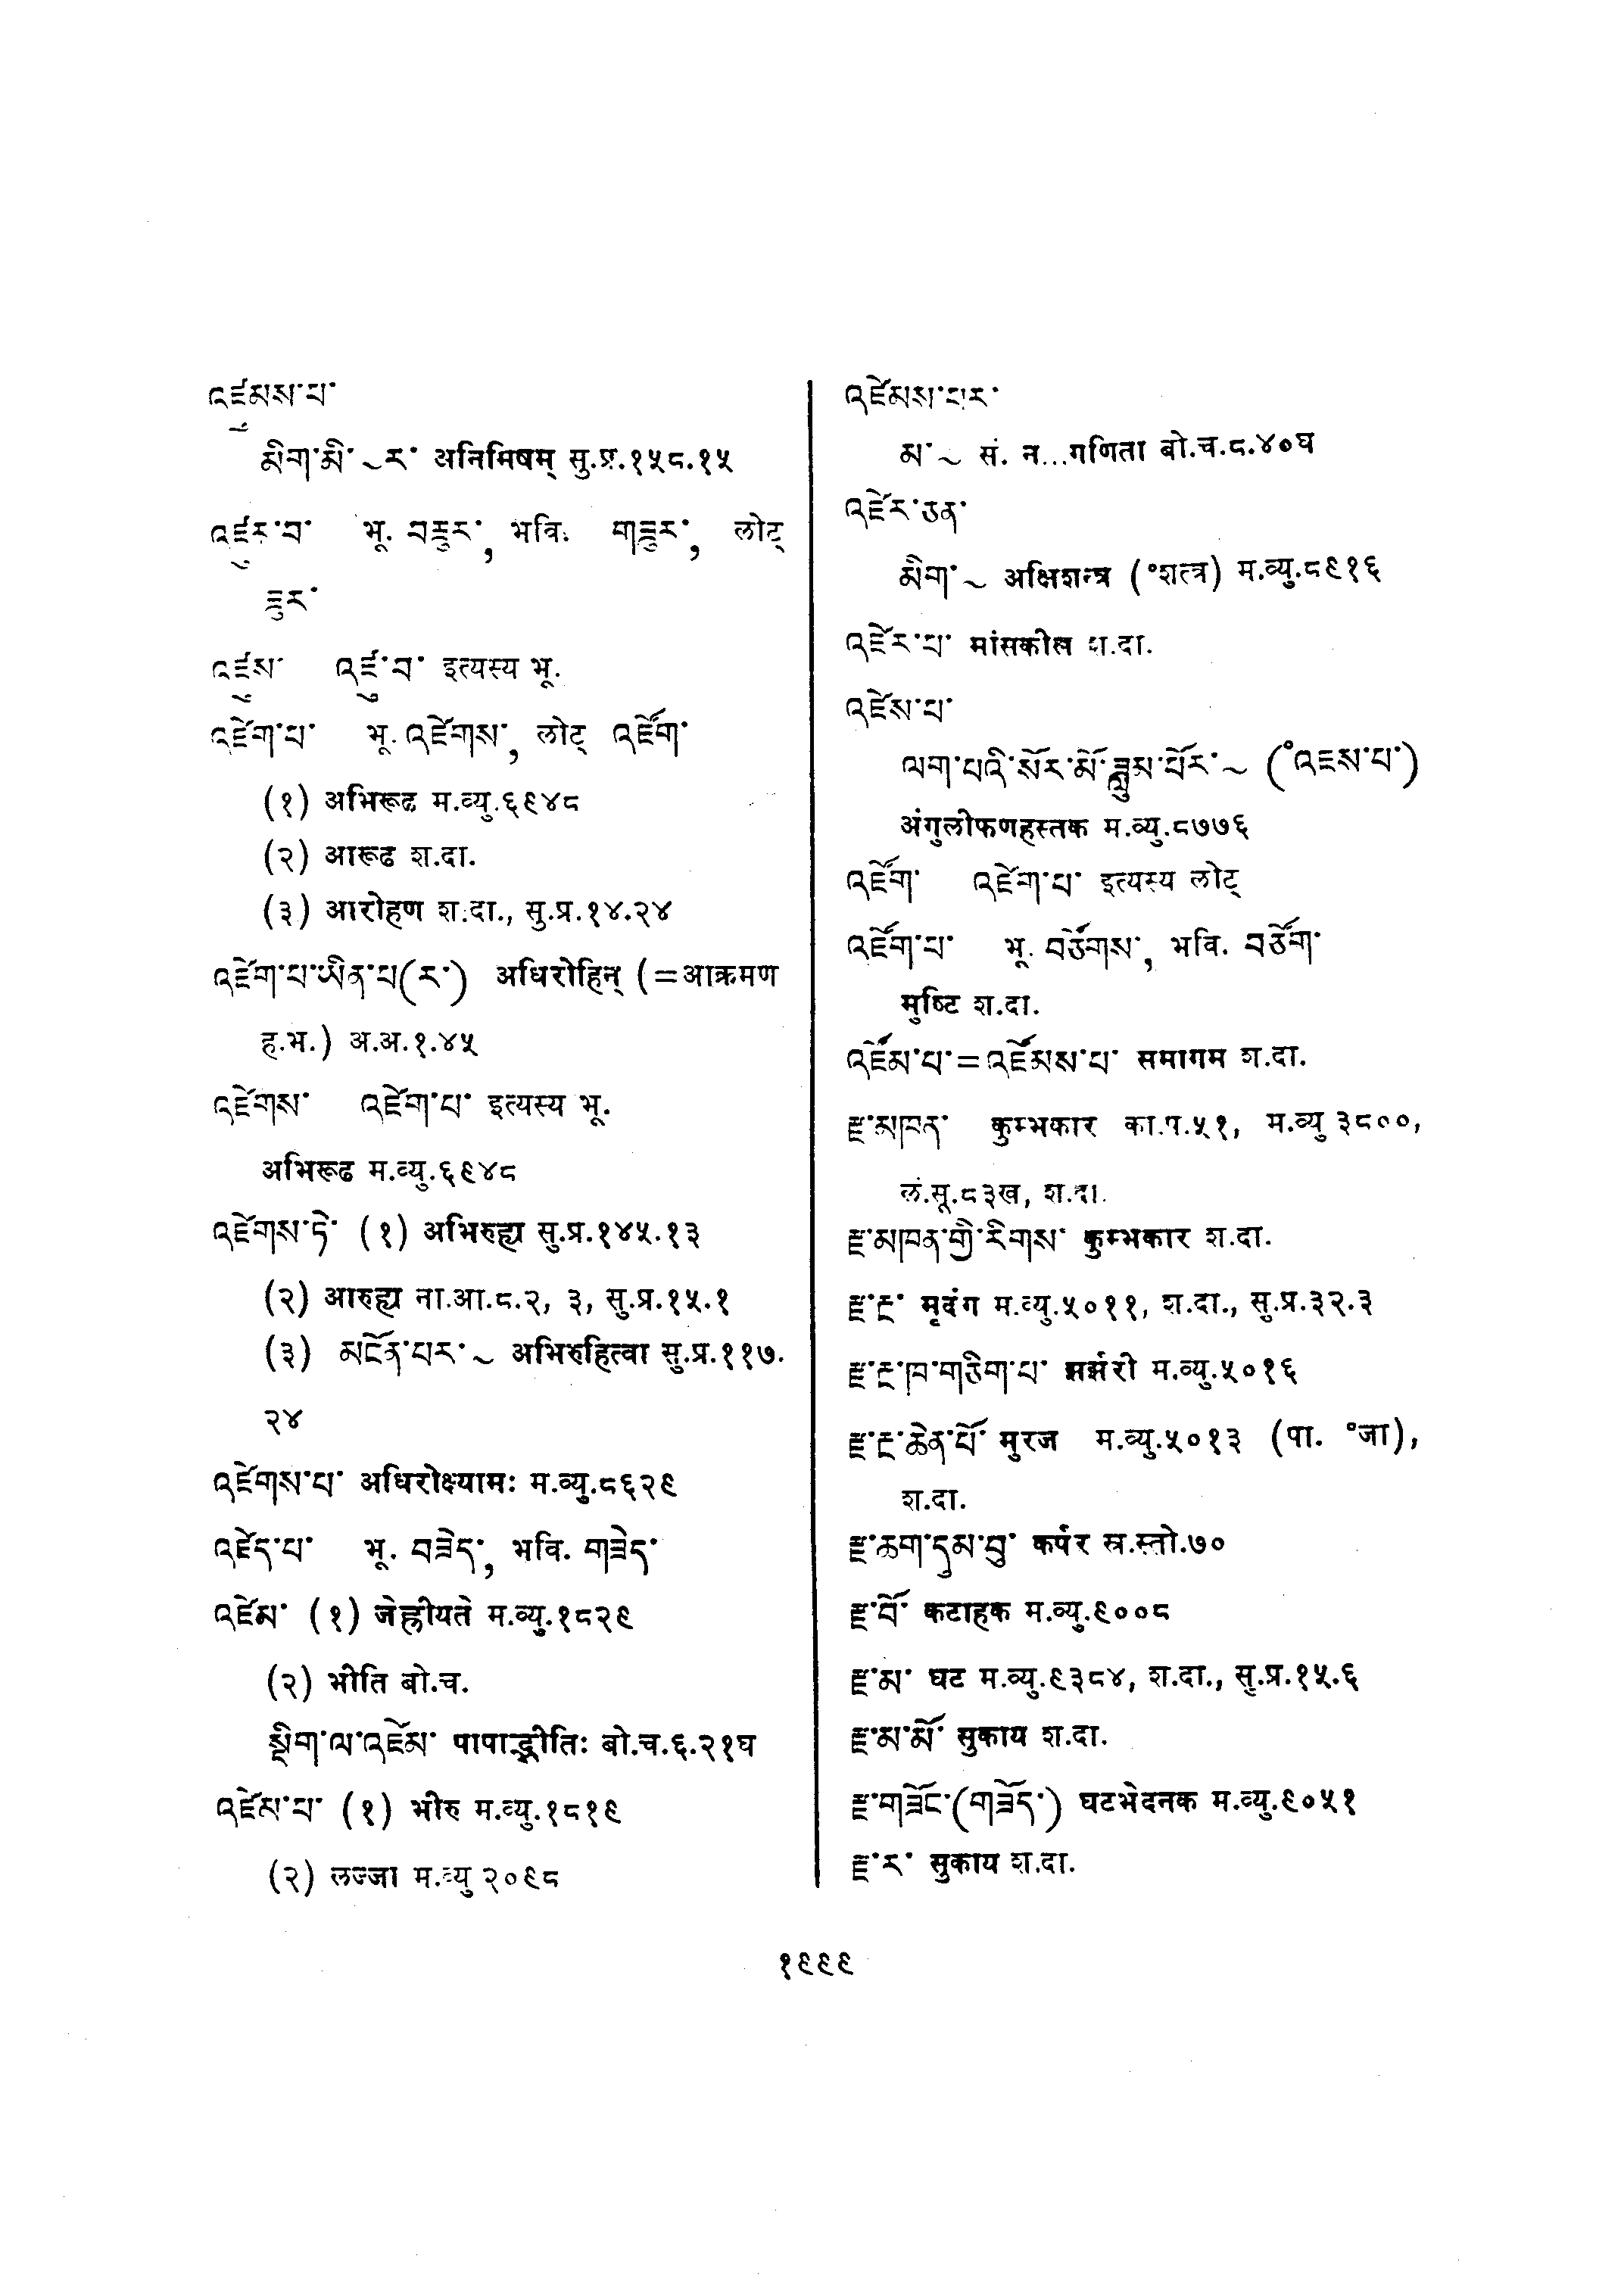 འཛུམས་པ་
མིག་མི་~ར་ अनिमिषम् सु.प्र.१५८.१५
འཛུར་བ་ भू. བཟུར་, भवि. གཟུར་, लोट्
ཟུར་
འཛུས་ འཛུ་བ་ इत्यस्य भू.
འཛེག་པ་ भू. འཛེགས་, लोट् འཛོག་
(१) अभिरूढ म.व्यु.६९४८
(२) आरूढ श.दा.
(३) आरोहण श.दा., सु.प्र.१४.२४
འཛེག་པ་ཡིན་པ(ར་) अधिरोहिन् (=आक्रमण
ह.भ.) अ.अ.१.४५
འཛེགས་ འཛེག་པ་ इत्यस्य भू.
अभिरूढ म.व्यु.६९४८
འཛེགས་ཏེ་ (१) अभिरुह्य सु.प्र.१४५.१३
(२) आरुह्य ना.आ.८.२, ३, सु.प्र.१५.१
(३) མངོན་པར་~ अभिरुहित्वा सु.प्र.११७.
२४
འཛེགས་པ་ अधिरोक्ष्यामः म.व्यु.८६२९
འཛེད་པ་ भू. བཟེད་, भवि. གཟེད་
འཛེམ་ (१) जेह्रीयते म.व्यु.१८२९
(२) भीति बो.च.
སྡིག་ལ་འཛེམ་ पापाद्भीतिः बो.च.६.२१घ
འཛེམ་པ་ (१) भीरु म.व्यु.१८१९
(२) लज्जा म.व्यु २०९८
འཛེམས་པར་
མ་~ सं. न...गणिता बो.च.८.४०घ
འཛེར་ཅན་
མིག་~ अक्षिशन्त्र (°शत्त्र) म.व्यु.८९१६
འཛེར་པ་ मांसकील श.दा.
འཛེས་པ་
ལག་པའི་སོར་མོ་ཟླུམ་པོར་~ (°འཇས་པ་)
अंगुलीफणहस्तक म.व्यु.८७७६
འཛོག་ འཛེག་པ་ इत्यस्य लोट्
འཛོག་པ་ भू. བཙོགས་, भवि. བཙོག་
मुष्टि श.दा.
འཛོམ་པ་=འཛོམས་པ་ समागम श.दा.
རྫ་མཁན་ कुम्भकार का.प.५१, म.व्यु ३८००,
लं.सू.८३ख, श.दा.
རྫ་མཁན་གྱི་རིགས་ कुम्भकार श.दा.
རྫ་རྔ་ मृदंग म.व्यु.५०११, श.दा., सु.प्र.३२.३
རྫ་རྔ་ཁ་གཅིག་པ་ झर्झरी म.व्यु.५०१६
རྫ་རྔ་ཆེན་པོ་ मुरज म.व्यु.५०१३ (पा. °जा),
श.दा.
རྫ་ཆག་དུམ་བུ་ कर्पर स्र.स्तो.७०
རྫ་བོ་ कटाहक म.व्यु.९००८
རྫ་མ་ घट म.व्यु.९३८४, श.दा., सु.प्र.१५.६
རྫ་མ་མོ་ सुकाय श.दा.
རྫ་གཟོང་(གཟོད་) घटभेदनक म.व्यु.९०५१
རྫ་ར་ सुकाय श.दा.
१९९९